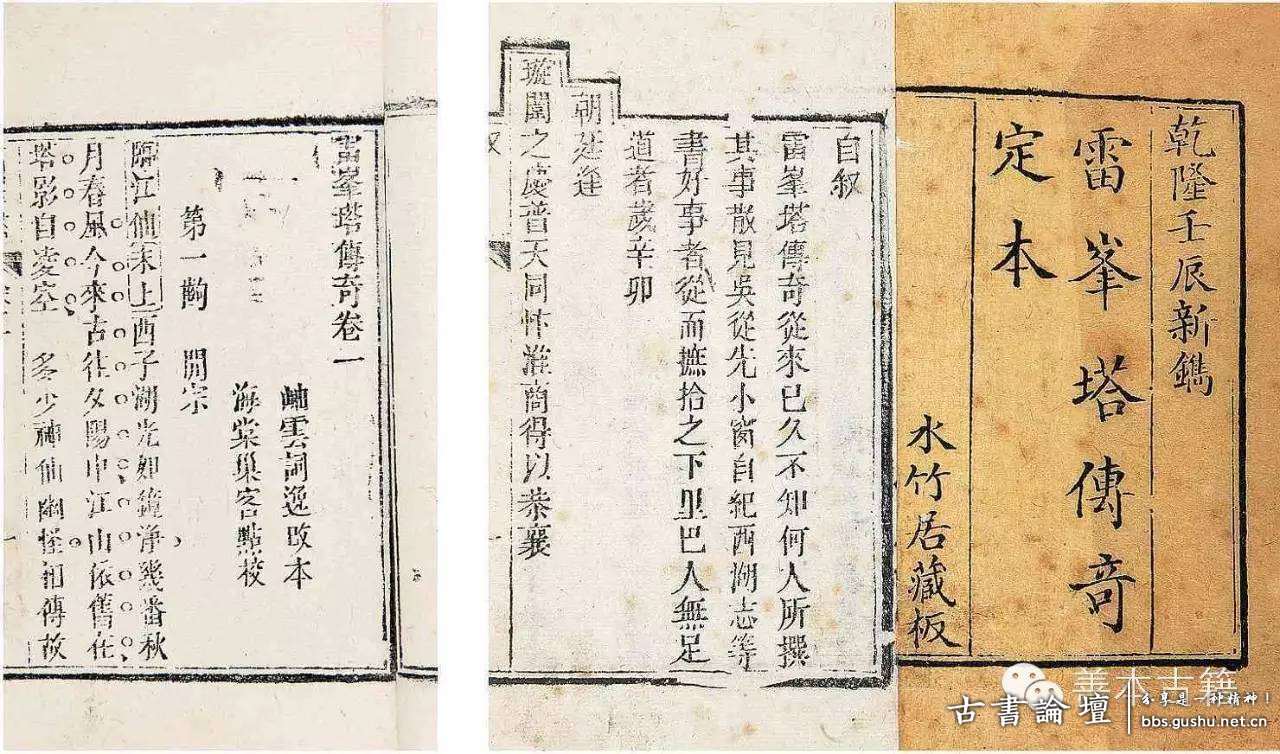 乾隆壬辰新鐫
雷峯塔傳奇
定本
水竹居藏板
自叙
雷峯塔傳奇從來已久不知何人所撰
其事散見吳從先小窗自紀西湖志等
書好事者從而摭拾之下里巴人無足
道者歲辛卯
朝廷逢
璇闈之慶普天同忭淮商得以恭襄
叙
一
雷峯塔傳奇卷一
岫雲詞逸改本
海棠巢客點校
第一齣 開宗
臨江仙末上西子湖光如鏡淨幾番秋
月春風今來古往夕陽中江山依舊在
塔影自凌空 多少神仙幽怪相傳故
善本古籍
古書論壇
分享是一种精神!
bbs.gushu.net.cn